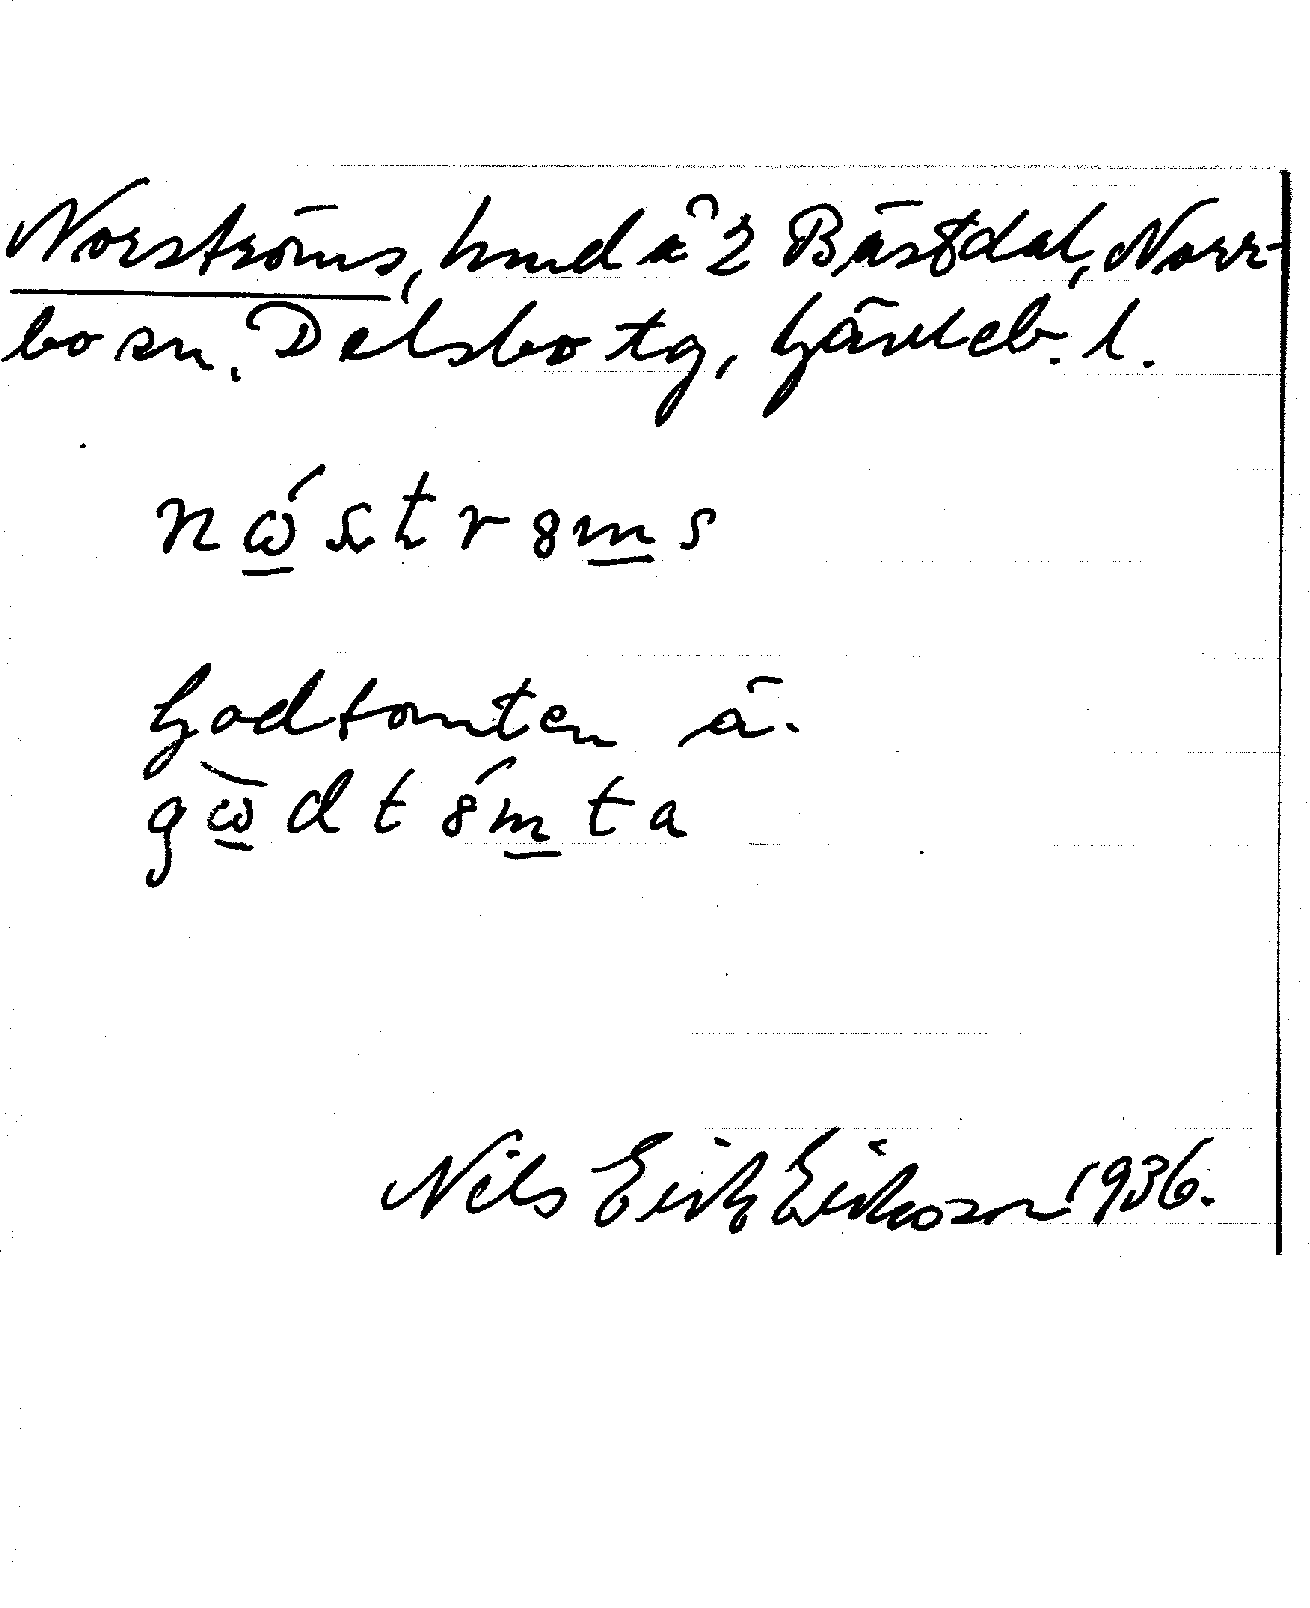 Norströms, hmd å 2 Bästdal, Norr-
bo sn, Delsbo tg, Gävleb. l.
nώström̲s
Godtomten ä.
gὼdtóm̲ta
Nils Erik Eriksson 1936.